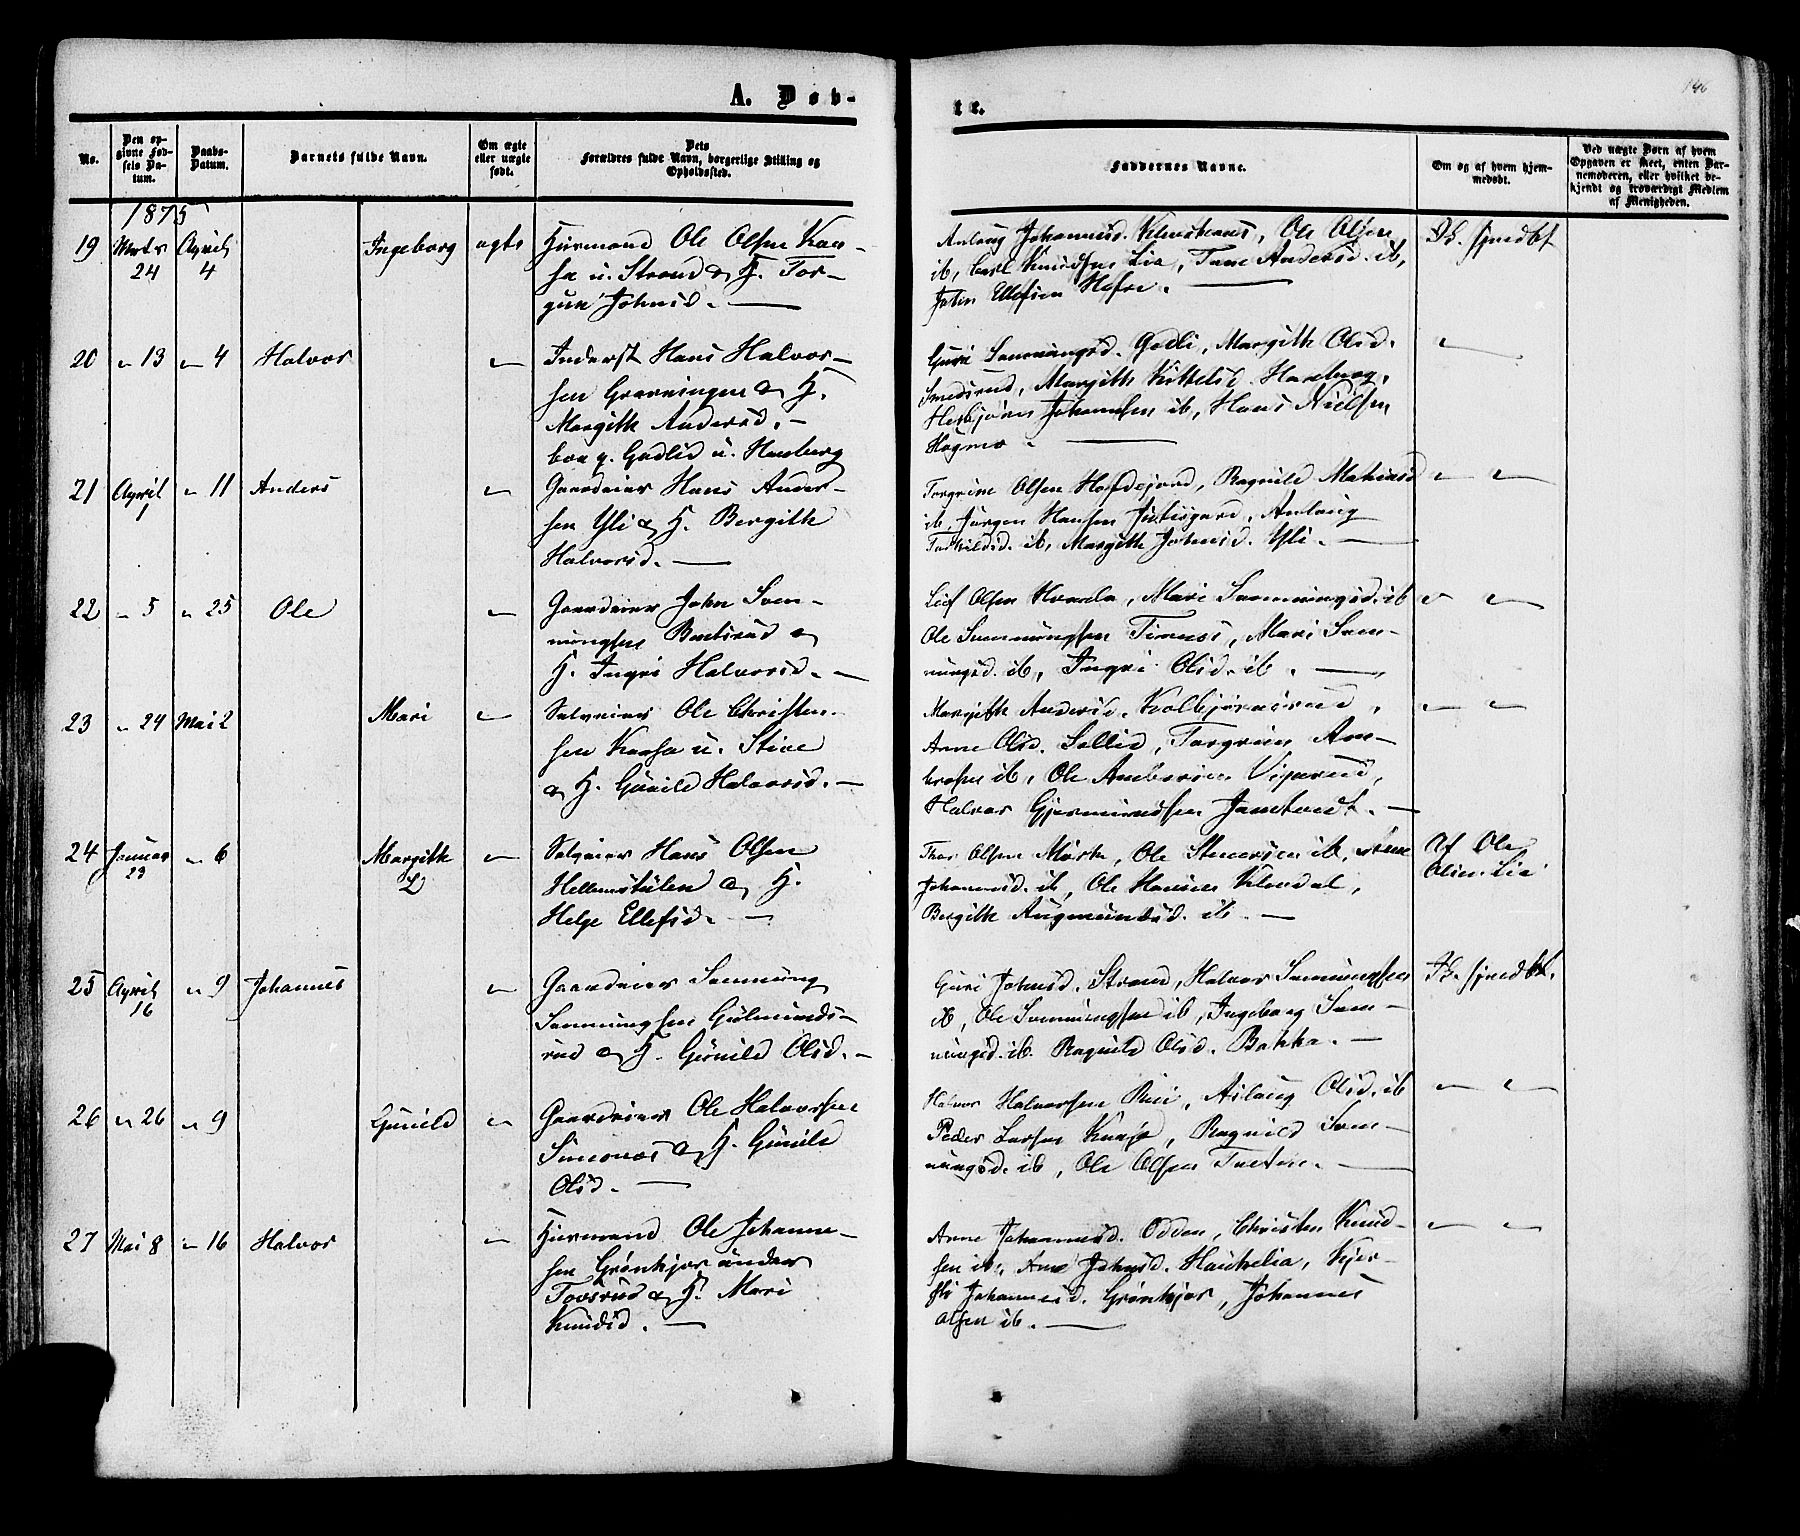 A. Døb-
te.
146
No.
Den op-
givne Fød-
sels Da-
tum.
Daabs-
Datum.
Barnets fulde Navn.
Om ægte
eller uægte
født.
Dets
Forældres fulde Navn, borgerlige Stilling og
Opholdssted.
Faddernes Navne.
Om og af hvem hjem-
medøbt.
Ved uægte Børn af hvem
Opgaven er skeet, enten Bar-
nemoderen, eller hvilket be-
kjendt og troværdigt Medlem
af Menigheden.
1875
19 Marts 24 April 4 Ingeborg ægte
Huusmand Ole Olsen Kaa-
sa u. Strand & H. Tor-
gun Johnsd. —
Aslaug Johannesd. Ole Olsen
ib, Carl Knudsen Lia, Tone Andersd. ib,
John Ellefsen Hofre. —
20 " 13 " 4 Halvor "
Inderst Hans Halvor-
sen Grønningen & H.
Margith Andersd. —
boe p. Gudlid u. Hauberg
Guri Svenningsd. Godli, Margith Olsd.
Smedsrud, Margith Kittelsd. Hauberg,
Herbjørn Johannsen ib, Hans Nielsen
Hagmo. —
"
21 April 1 " 11 Anders "
Gaardeier Hans Ander-
sen Yli & H. Bergith
Halvorsd. —
Torgrim Olsen Hofdejord, Ragnild Mathiesd
ib, Jørgen Hansen Juvisgard, Aslaug
Torkildsd. ib, Margith Johnsd. Yli. —
" "
22 " 5 " 25 Ole "
Gaardeier John Sven-
ningsen Bentsrud &
H. Ingri Halvorsd. —
Leif Olsen Hvaala, Mari Svenningsd. ib
Ole Svenningsen Tinnes, Mari Sven-
ningsd. ib, Ingri Olsd. ib. —
" "
23 " 24 Mai 2 Mari "
Selveier Ole Christen-
sen Kaasa u. Stive
& H. Gunild Halvorsd. —
Margith Andersd. Kolbjørnsrud,
Anne Olsd. Sollid, Torgrim Am-
brosen ib, Ole Ambrosen Vigerud,
Halvor Gjermundsen Jamtvedt. —
" "
24 Januar 23 " 6 Margith L "
Selveier Hans Olsen
Hellemstulen & H.
Helge Ellefsd. —
Thor Olsen Mørk, Ole Steversen ib, Anne
Johannesd. ib, Ole Hansen Klevdal,
Bergith Augmundsd. ib. —
Af Ole
Olsen Lia
25 April 16 " 9 Johannes "
Gaardeier Svenning
Svenningsen Gulmunds-
rud & H. Gunild Olsd. —
Guri Johnsd. Strand, Halvor Svenningsen
ib, Ole Svenningsen ib, Ingeborg Sven-
ningsd. ib. Ragnild Olsd. Bakka. —
26 " 26 " 9 Gunild "
Gaardeier Ole Halvorsen
Simones & H. Gunild
Olsd. —
Halvor Halvorsen Rui, Aslaug Olsd. ib
Peder Larsen Knaje, Ragnild Sven-
ningsd. ib, Ole Olsen Tveten. —
" "
27 Mai 8 " 16 Halvor "
Huusmand Ole Johanne-
sen Grønkjør under
Tovsrud & H. Mari
Knudsd. —
Anne Johannesd. Odden, Christen Knud-
sen ib, Anne Johnsd. Haukelia, Kjer-
sti Johannesd. Grønkjør, Johannes
Olsen ib. —
" "